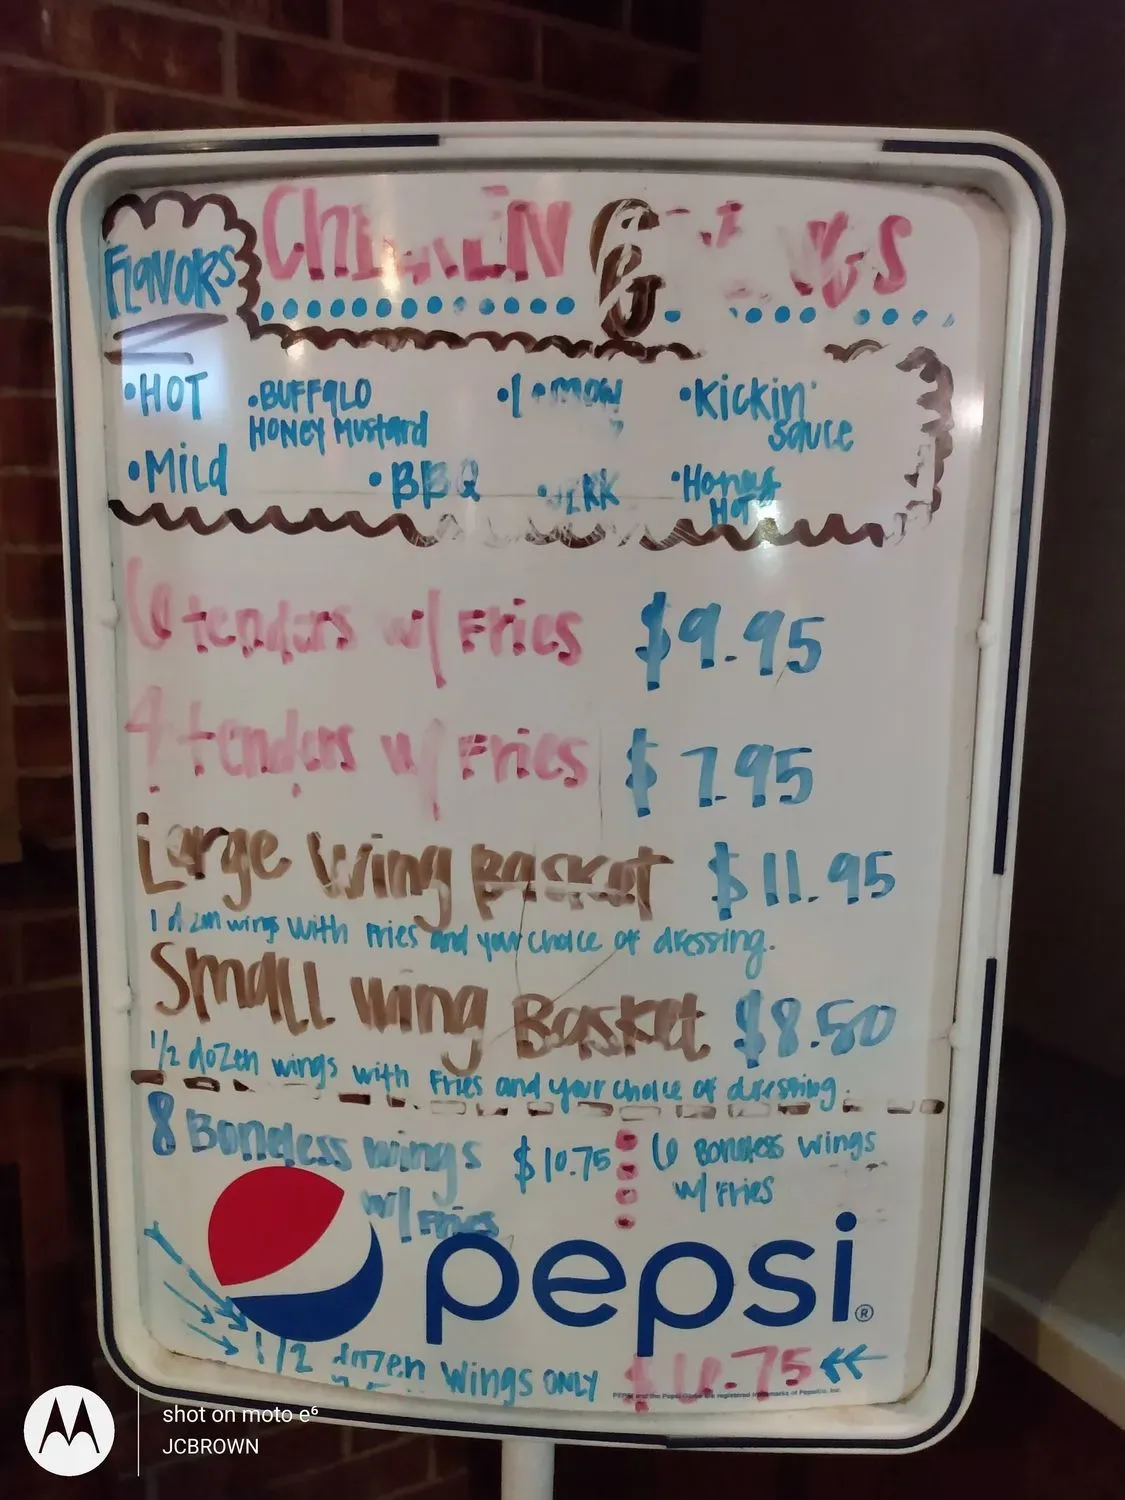 FLAVORS
CHICKEN & WINGS
•HOT •BUFFALO HONEY MUSTARD •Kickin' Sauce
•Mild •BBQ •JERK •Honey Hot
6 tenders w/ Fries $9.95
4 tenders w/ Fries $7.95
Large Wing Basket $11.95
1 dozen wings with Fries and your choice of dressing.
Small Wing Basket $8.50
1/2 dozen wings with Fries and your choice of dressing.
8 Boneless wings w/ Fries $10.75
6 Boneless wings w/ Fries
pepsi®
1/2 dozen Wings ONLY $6.75
PEPSI and the Pepsi Globe are registered trademarks of PepsiCo, Inc.
shot on moto e⁶
JCBROWN